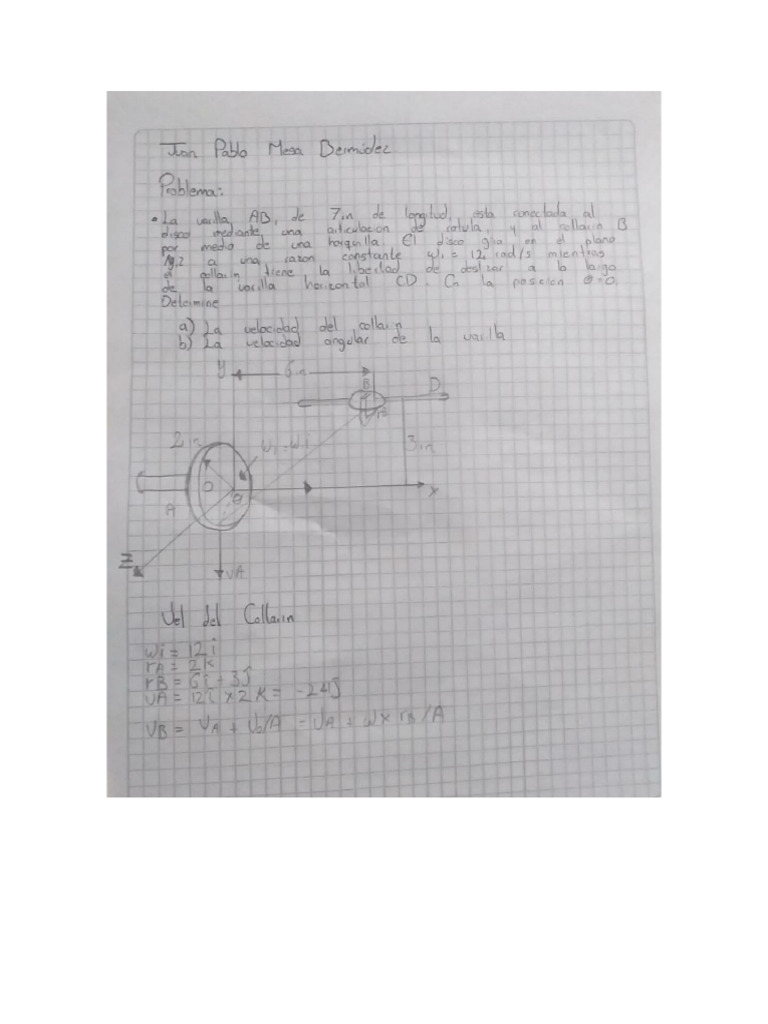 Juan Pablo Mesa Bermúdez
Problema:
• La varilla AB, de 7in de longitud, esta conectada al
disco mediante una articulacion de rotula, y al collarin B
por medio de una horquilla. El disco gira en el plano
a una razon constante w1 = 12 rad/s mientras
el collarin tiene la libertad de deslizar a lo largo
de la varilla horizontal CD. En la posicion θ=0.
Determine
a) La velocidad del collarin
b) La velocidad angular de la varilla
y 6in B D
2in 3in
O θ x
A
Z vA
Vel del Collarin
wi = 12i
rA = 2k
rB = 6i + 3j
vA = 12i x 2k = -24j
VB = VA + Vb/A = VA + w x rB/A